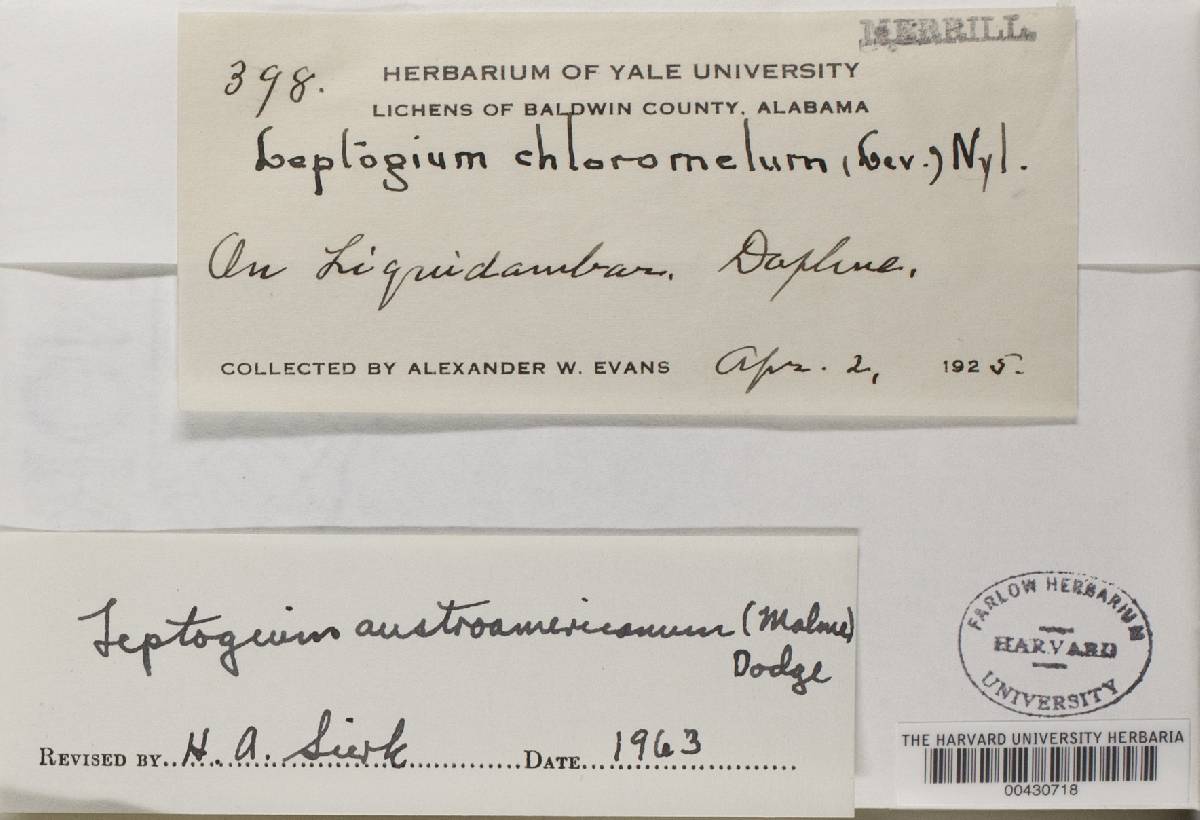 MERRILL
398.
HERBARIUM OF YALE UNIVERSITY
LICHENS OF BALDWIN COUNTY, ALABAMA
Leptogium chloromelum, (Lev.) Nyl.
On Liquidambar. Daphne.
COLLECTED BY ALEXANDER W. EVANS Apr. 2, 1925.
Leptogium austroamericanum (Malme)
Dodge
REVISED BY H. A. Sierk DATE 1963
FARLOW HERBARIUM
HARVARD
UNIVERSITY
THE HARVARD UNIVERSITY HERBARIA
00430718